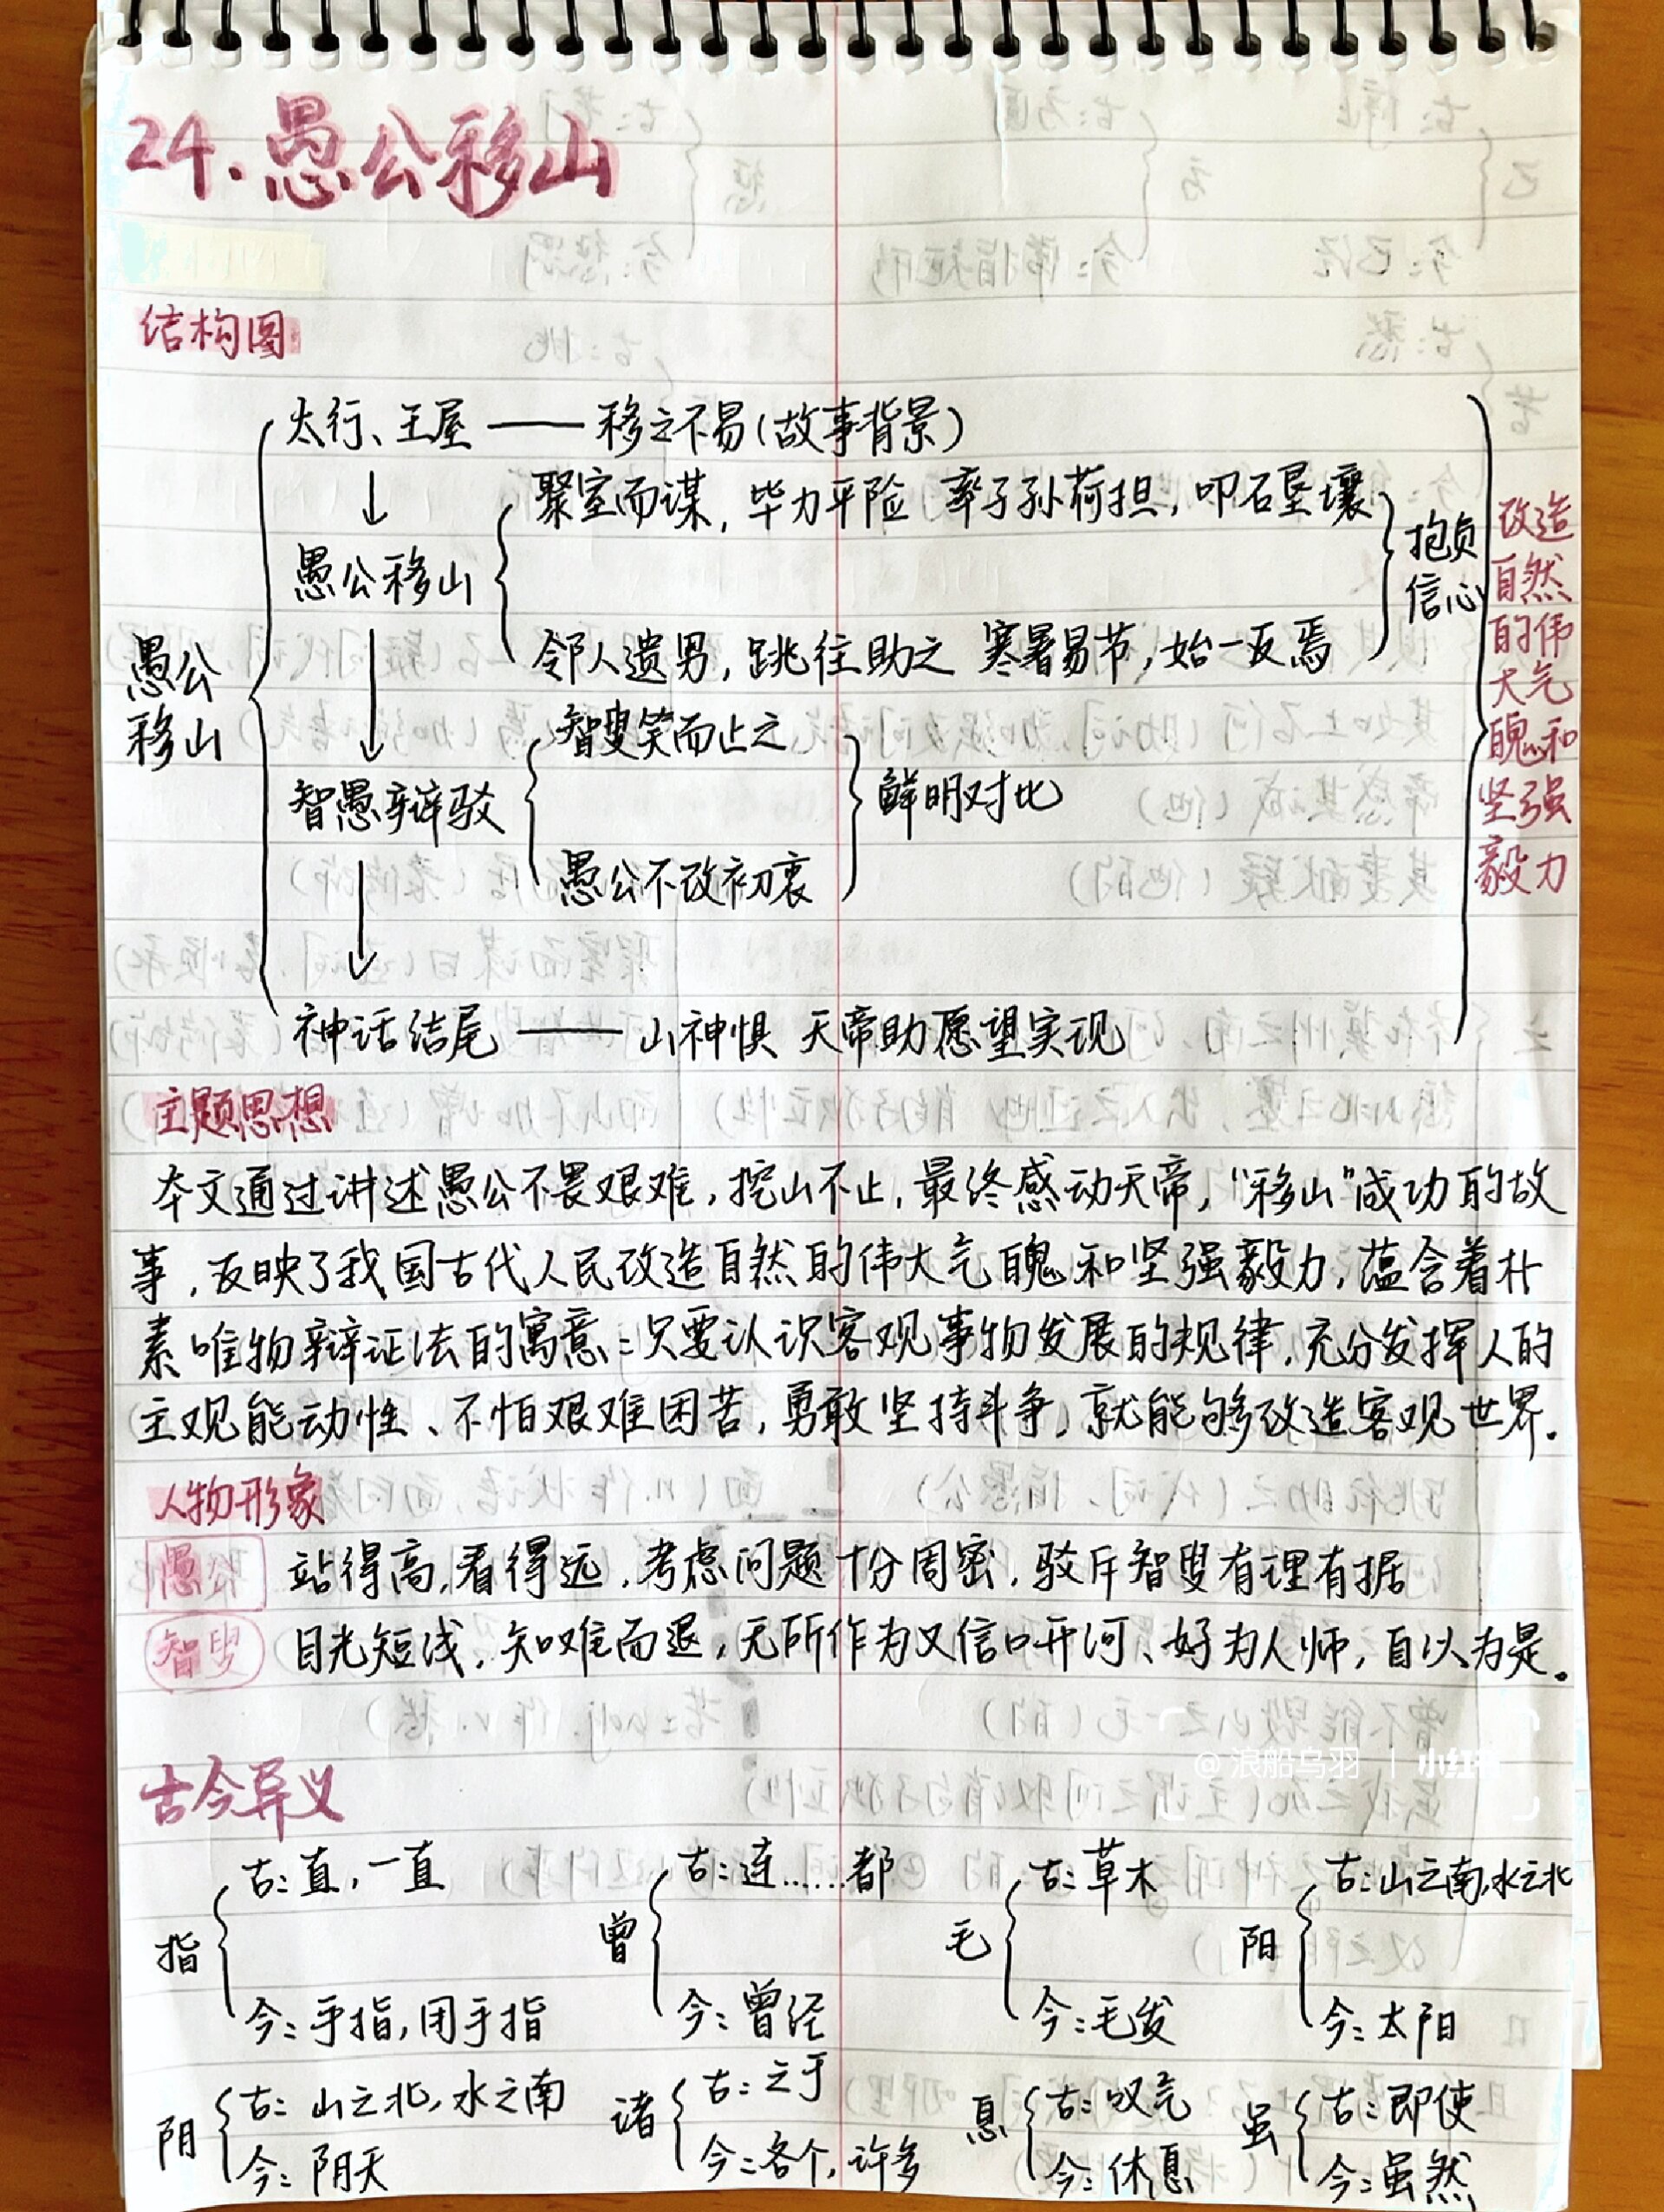 24.愚公移山
结构图
太行、王屋 —— 移之不易(故事背景)
聚室而谋,毕力平险 率子孙荷担,叩石垦壤
愚公移山
邻人遗男,跳往助之 寒暑易节,始一反焉
抱负
信心
愚公
移山
智叟笑而止之
智愚辩驳
鲜明对比
愚公不改初衷
神话结尾 —— 山神惧 天帝助愿望实现
改造
自然
的伟
大气
魄和
坚强
毅力
主题思想
本文通过讲述愚公不畏艰难,挖山不止,最终感动天帝,“移山”成功的故
事,反映了我国古代人民改造自然的伟大气魄和坚强毅力,蕴含着朴
素唯物辩证法的寓意:只要认识客观事物发展的规律,充分发挥人的
主观能动性、不怕艰难困苦,勇敢坚持斗争,就能够改造客观世界。
人物形象
愚公 站得高,看得远,考虑问题十分周密,驳斥智叟有理有据
智叟 目光短浅,知难而退,无所作为又信口开河、好为人师,自以为是。
@浪船鸟羽 | 小红书
古今异义
古:直,一直 古:连……都 古:草木 古:山之南,水之北
指 曾 毛 阳
今:手指,用手指 今:曾经 今:毛发 今:太阳
古:山之北,水之南 古:之于 古:叹气 古:即使
阴 诸 息 虽
今:阴天 今:各个,许多 今:休息 今:虽然